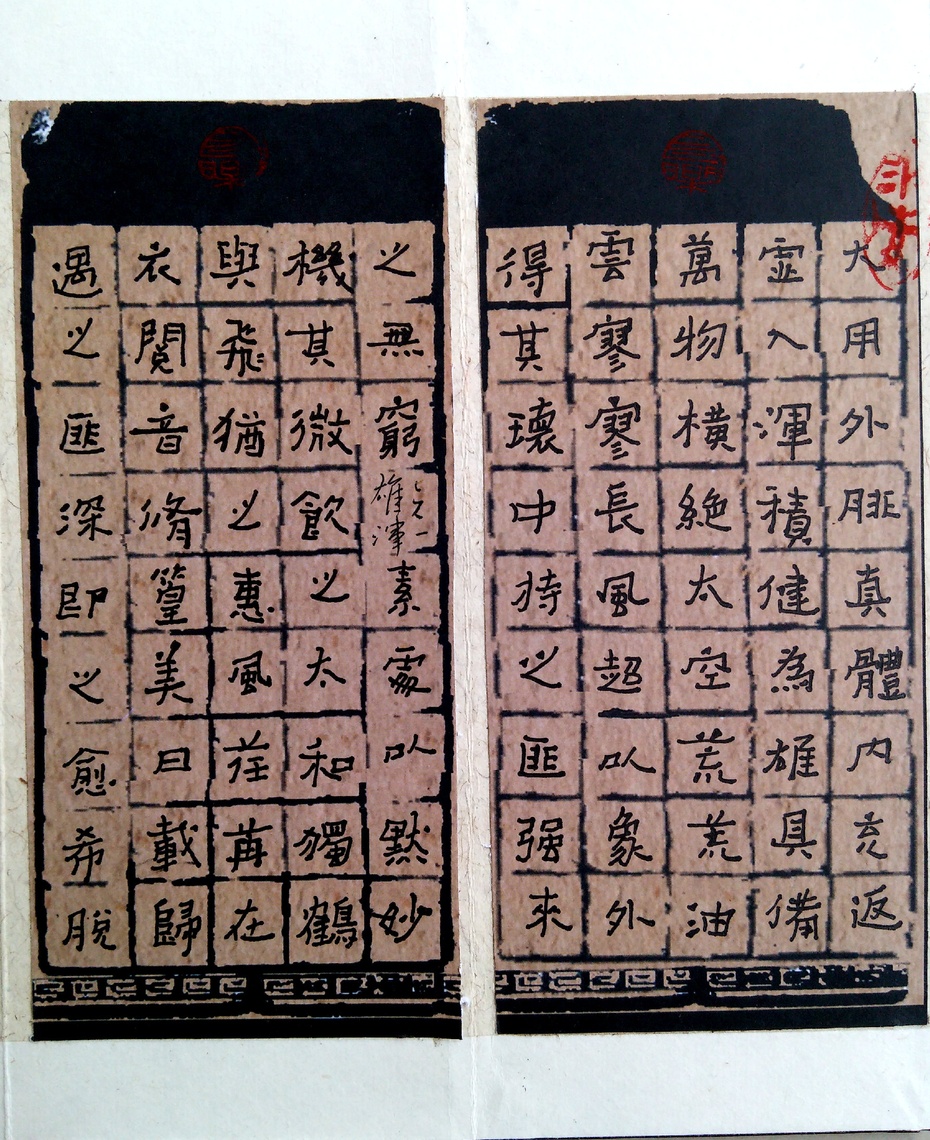 大用外腓真體内充返
虛入渾積健為雄具備
萬物橫絕太空荒荒油
雲寥寥長風超以象外
得其環中持之匪强來
之無窮
雄渾
素處以默妙
機其微飲之太和獨鶴
與飛猶之惠風荏苒在
衣閱音脩篁美曰載歸
遇之匪深即之愈希脫